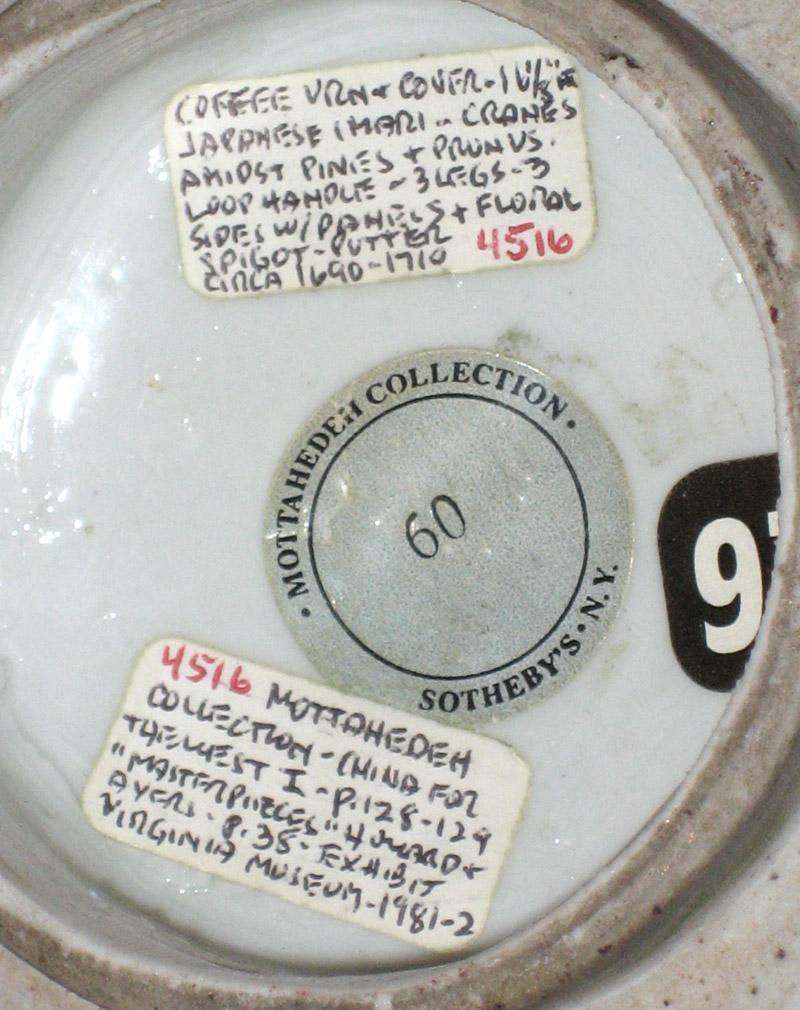 COFFEE URN & COVER-16 1/8" H
JAPANESE IMARI - CRANES
AMIDST PINES + PRUNUS.
LOOP HANDLE - 3 LEGS - 3
SIDES W/PANELS + FLORAL
SPIGOT-PUTTER
CIRCA 1690-1710
4516
• MOTTAHEDEH COLLECTION •
60
SOTHEBY'S • N.Y.
9
4516 MOTTAHEDEH
COLLECTION - CHINA FOR
THE WEST I - P.128-129
"MASTERPIECES" HOWARD &
AYERS - P.35 - EXHIBIT
VIRGINIA MUSEUM-1981-2